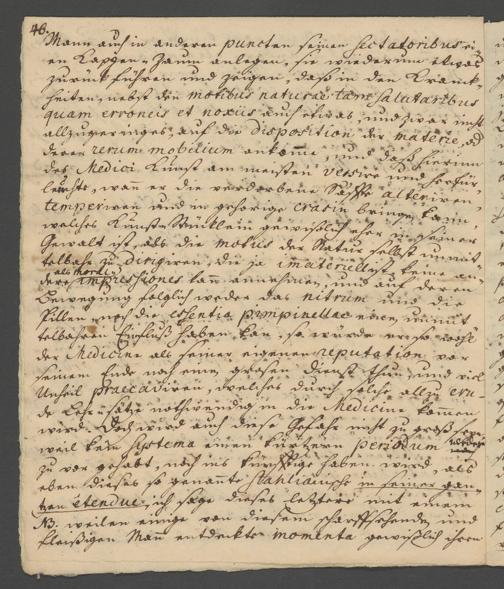 46.
Mann auch in anderen puncten seinen sectatoribus ei-
nen Kappen-Zaum anlegen, sie wiederum etwas
zurück führen und zeigen, daß in den Kranck-
heiten, nebst den motibus naturae tam salutaribus
quam erroneis et noxiis auch etwas, und zwar nicht
allzuweniges, auf die disposition der materie, od
deren rerum mobilium ankomme, und daß hierinn
des Medici Kunst am meisten versire und herfür-
leuchte, wan er die verdorbene Säffte alteriren,
temperiren und in gehörige crasin bringen kann
welches Kunst-Stücklein gewißlich eher in seiner
Gewalt ist, als die motus der Natur selbst immit-
telbahr zu dirigiren, die ja immateriell ist, keine an-
dere als morales impressiones kann annehmen, und auf deren
Bewegung folglich weder das nitrum und die
Pillen, noch die essentia pimpinellae einen immit-
telbahren Einfluß haben kan, so würde er so wohl
der Medicine als seiner eigenen reputation vor
seinem Ende noch einen großen dienst thun und viel
Unheil praecaviren, welches durch solche allzu cru-
de Lehrsätze nothwendig in die Medicine kommen
wird. Doch wird auch diese Gefahr nicht zu groß seyn
weil kein Systema einen kürtzern periodum
zu vor gehabt, noch ins künfftige haben wird, als
eben dieses so genannte Stahlianische in seiner gan-
tzen étendue, ich sage dieses letztere mit einem
NB. weilen einige von diesem scharffsehenden und
fleißigen Mann entdeckte momenta gewißlich ihren